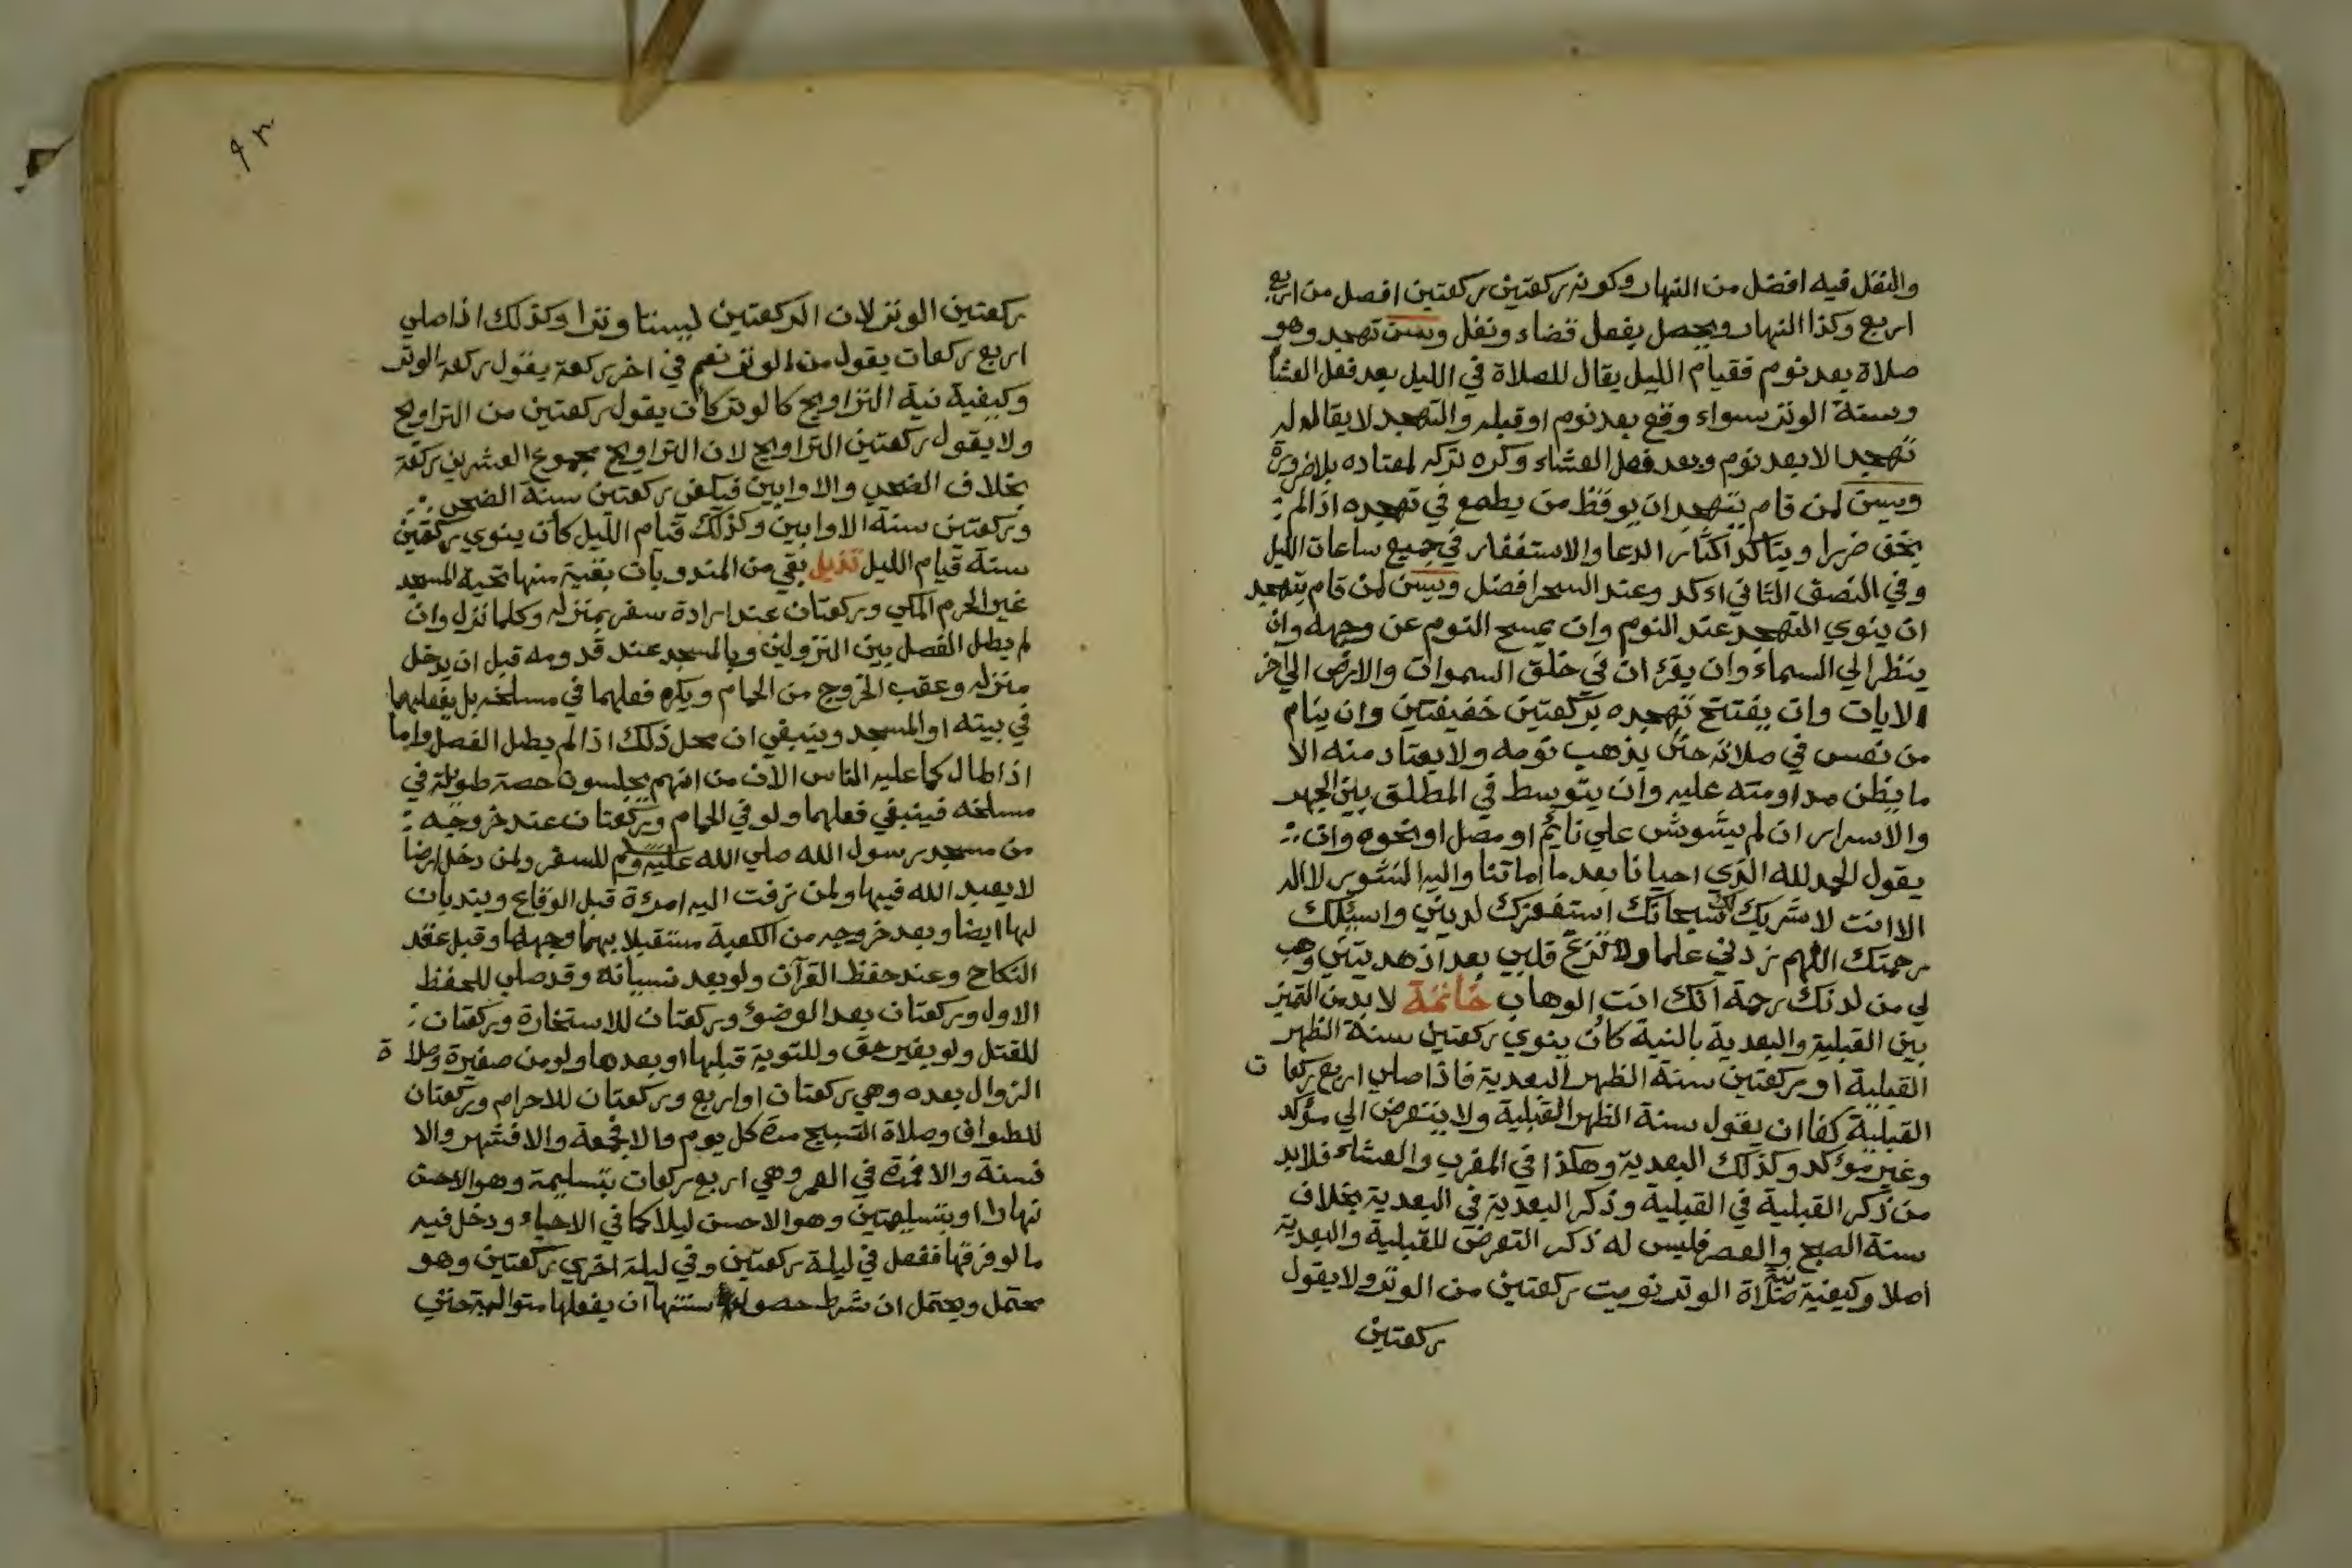 والنفل فيه افضل من النهار وكونه ركعتين ركعتين افصل من اربع
اربع وكذا النهار ويحصل بفعل قضاء ونفل ويسن تهجد وهو
صلاة بعد نوم فقيام الليل يقال للصلاة في الليل بعد فعل العشا
وسنة الوتر سواء وقع بعد نوم او قبله والتهجد لا يقال له
تهجد الا بعد نوم وبعد فعل العشاء وكره تركه لمعتاده بلا ضرورة
ويسن لمن قام يتهجد ان يوقظ من يطمع في تهجده اذا لم
يخف ضررا ويتاكد اكثار الدعا والاستغفار في جميع ساعات الليل
وفي النصف الثاني اكد وعند السحر افضل ويسن لمن قام يتهجد
ان ينوي التهجد عند النوم وان يمسح النوم عن وجهه وان
ينظر الي السماء وان يقرء ان في خلق السموات والارض الي اخر
الايات وان يفتتح تهجده بركعتين خفيفتين وان ينام
من نعس في صلاته حتي يذهب نومه ولا يعتاد منه الا
ما يظن مداومته عليه وان يتوسط في المطلق بين الجهر
والاسرار ان لم يشوش علي نائم او مصل او نحوه وان
يقول الحمد لله الذي احيانا بعد ما اماتنا واليه النشور لا اله
الا انت لا شريك لك سبحانك استغفرك لديني واسئلك
رحمتك اللهم زدني علما ولا تزغ قلبي بعد اذ هديتني وهب
لي من لدنك رحمة انك انت الوهاب خاتمة لا بد من التميز
بين القبلية والبعدية بالنية كان ينوي ركعتين سنة الظهر
القبلية او ركعتين سنة الظهر البعدية فاذا صلي اربع ركعات
القبلية كفا ان يقول سنة الظهر القبلية ولا يتعرض الي مؤكد
وغير مؤكد وكذلك البعدية وهكذا في المغرب والعشاء فلا بد
من ذكر القبلية في القبلية وذكر البعدية في البعدية بخلاف
سنة الصبح والعصر فليس له ذكر التعرض للقبلية والبعدية
اصلا وكيفية نية صلاة الوتر نويت ركعتين من الوتر ولا يقول
ركعتين
٩٢
ركعتين الوتر لان الركعتين ليستا وترا وكذلك اذا صلي
اربع ركعات يقول من الوتر نعم في اخر ركعة يقول ركعة الوتر
وكيفية نية التراويح كالوتر كان يقول ركعتين من التراويح
ولا يقول ركعتين التراويح لان التراويح مجموع العشرين ركعة
بخلاف الضحي والاوابين فيكفي ركعتين سنة الضحي
وركعتين سنة الاوابين وكذلك قيام الليل كان ينوي ركعتين
سنة قيام الليل تذيل بقي من المندوبات بقية منها تحية المسجد
غير الحرم المكي وركعتان عند ارادة سفر بمنزله وكلما نزل وان
لم يطل الفصل بين النزولين وبالمسجد عند قدومه قبل ان يدخل
منزله وعقب الخروج من الحمام ويكره فعلهما في مسلخه بل يفعلهما
في بيته او المسجد وينبغي ان محل ذلك اذا لم يطل الفصل واما
اذا طال كما عليه الناس الان من انهم يجلسون حصة طويلة في
مسلخه فينبغي فعلهما ولو في الحمام وركعتان عند خروجه
من مسجد رسول الله صلي الله عليه وسلم للسفر ولمن دخل ارضا
لا يعبد الله فيها ولمن زفت اليه امرءة قبل الوقاع ويندبان
لها ايضا وبعد خروجه من الكعبة مستقبلا بهما وجهها وقبل عقد
النكاح وعند حفظ القرآن ولو بعد نسيانه وقد صلي للحفظ
الاول وركعتان بعد الوضوء وركعتان للاستخارة وركعتان
للقتل ولو بغير حق وللتوبة قبلها او بعدها ولو من صغيرة وصلاة
الزوال بعده وهي ركعتان او اربع وركعتان للاحرام وركعتان
للطواف وصلاة التسبيح مرة كل يوم والا فجمعة والا فشهر والا
فسنة والا فمرة في العمر وهي اربع ركعات بتسليمة وهو الاحسن
نهارا او بتسليمتين وهو الاحسن ليلا كما في الاحياء ودخل فيه
ما لو فرقها ففعل في ليلة ركعتين وفي ليلة اخري ركعتين وهو
محتمل ويحتمل ان شرط حصول سنتها ان يفعلها متوالية حتي